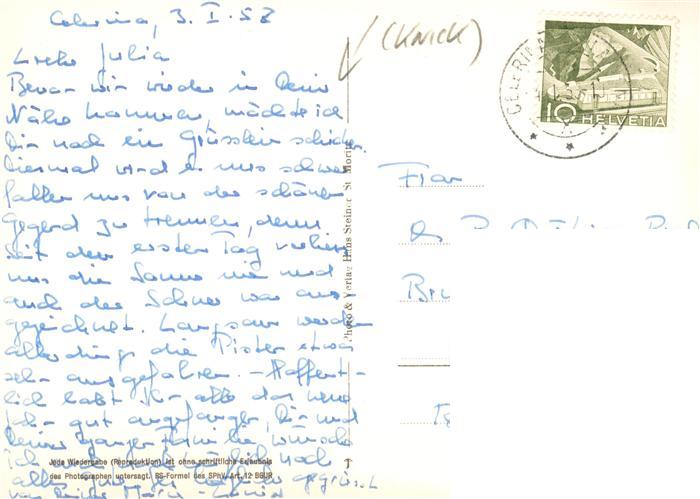 Celerina, 3. I. 58
(Knick)
Liebe Julia
Bevor wir wieder in Deine
Nähe kommen, möchte ich
Dir noch ein Grüsslein schicken.
Diesmal wird es uns schwer
fallen uns von der schönen
Gegend zu trennen, denn
seit dem ersten Tag verliess
uns die Sonne nie und
auch der Schnee war aus-
gezeichnet. Langsam werden
allerdings die Pisten etwas
sehr ausgefahren. - Hoffent-
lich habt Ihr alle das neue
Jahr gut angefangen, Dir und
Deiner ganzen Familie wünsche
ich noch
alles gegrüsst
von
CELERINA
10 HELVETIA
Frau
Photo & Verlag Hans Steiner, St. Moritz
Jede Wiedergabe (Reproduktion) ist ohne schriftliche Erlaubnis
des Photographen untersagt. BS-Formel des SPhV, Art. 12 BGUR